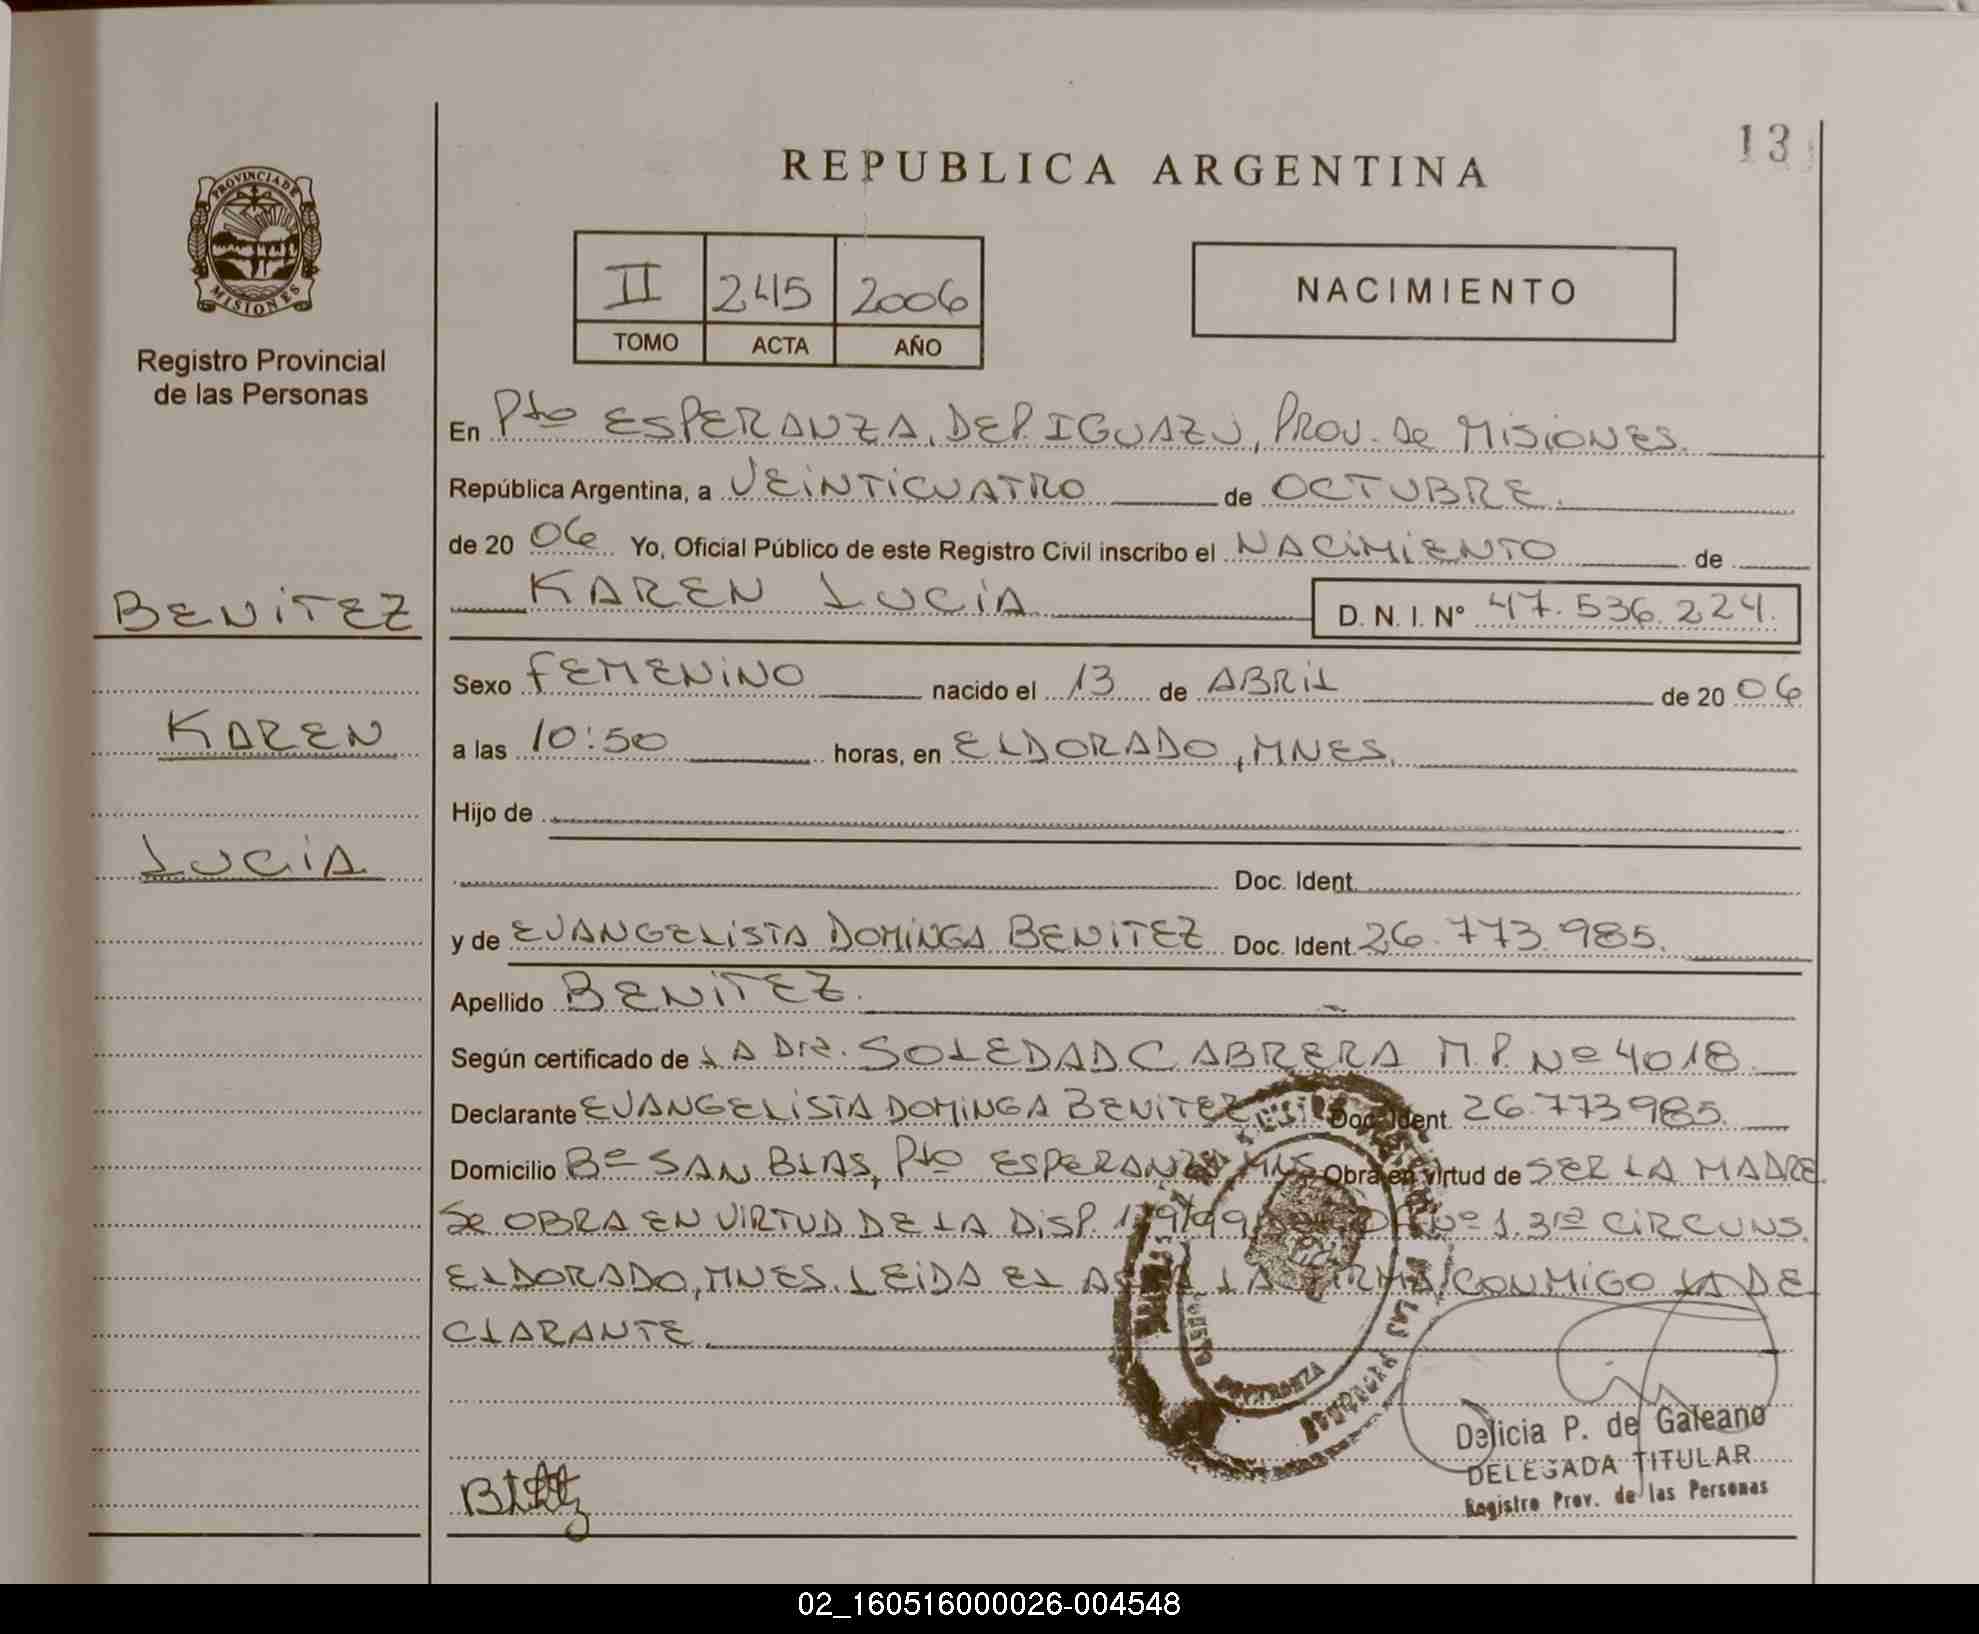 13
REPUBLICA ARGENTINA
PROVINCIA DE
MISIONES
Registro Provincial
de las Personas
II 245 2006
TOMO ACTA AÑO
NACIMIENTO
En Pto ESPERANZA, DEP. IGUAZU, PROV. De MISIONES.
República Argentina, a VEINTICUATRO de OCTUBRE.
de 20 06 Yo, Oficial Público de este Registro Civil inscribo el NACIMIENTO de
KAREN LUCIA D. N. I. N° 47.536.224.
BENITEZ
KAREN
LUCIA
Sexo FEMENINO nacido el 13 de ABRIL de 20 06
a las 10:50 horas, en ELDORADO, MNES.
Hijo de
Doc. Ident.
y de EVANGELISTA DOMINGA BENITEZ Doc. Ident. 26.773.985.
Apellido BENITEZ.
Según certificado de LA Dra. SOLEDAD CABRERA M.P. Nº 4018
Declarante EVANGELISTA DOMINGA BENITEZ Doc. Ident. 26.773985.
Domicilio Bº SAN BLAS, Pto ESPERANZA MNS Obra en virtud de SER LA MADRE.
Se OBRA EN VIRTUD DE LA DISP. Nº 1. 3ra CIRCUNS.
ELDORADO, MNES. LEIDA EL ACTA LA FIRMA CONMIGO LA DE
CLARANTE.
PUERTO
ESPERANZA
DE LAS PERSONAS
Delicia P. de Galeano
DELEGADA TITULAR
Registro Prov. de las Personas
02_160516000026-004548